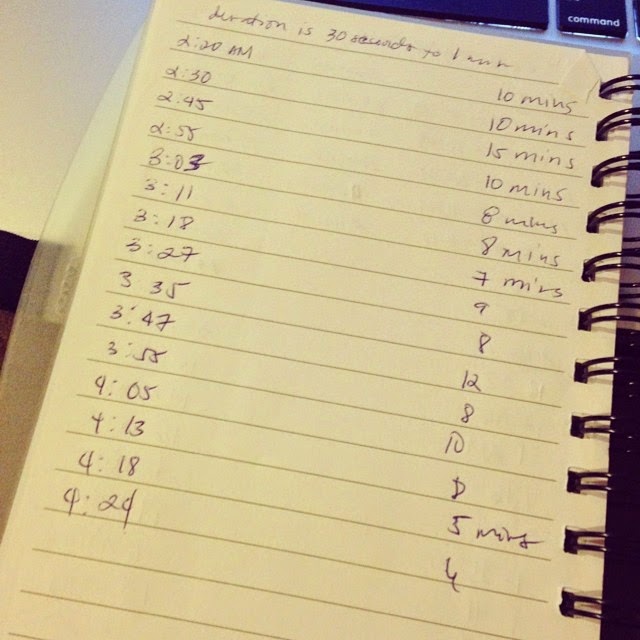 command
duration is 30 seconds to 1 min
2:20 AM 10 mins
2:30 10 mins
2:45 15 mins
2:55 10 mins
3:03 8 mins
3:11 8 mins
3:18 7 mins
3:27 9
3:35 8
3:47 12
3:55 8
4:05 10
4:13 8
4:18 5 mins
4:24 4